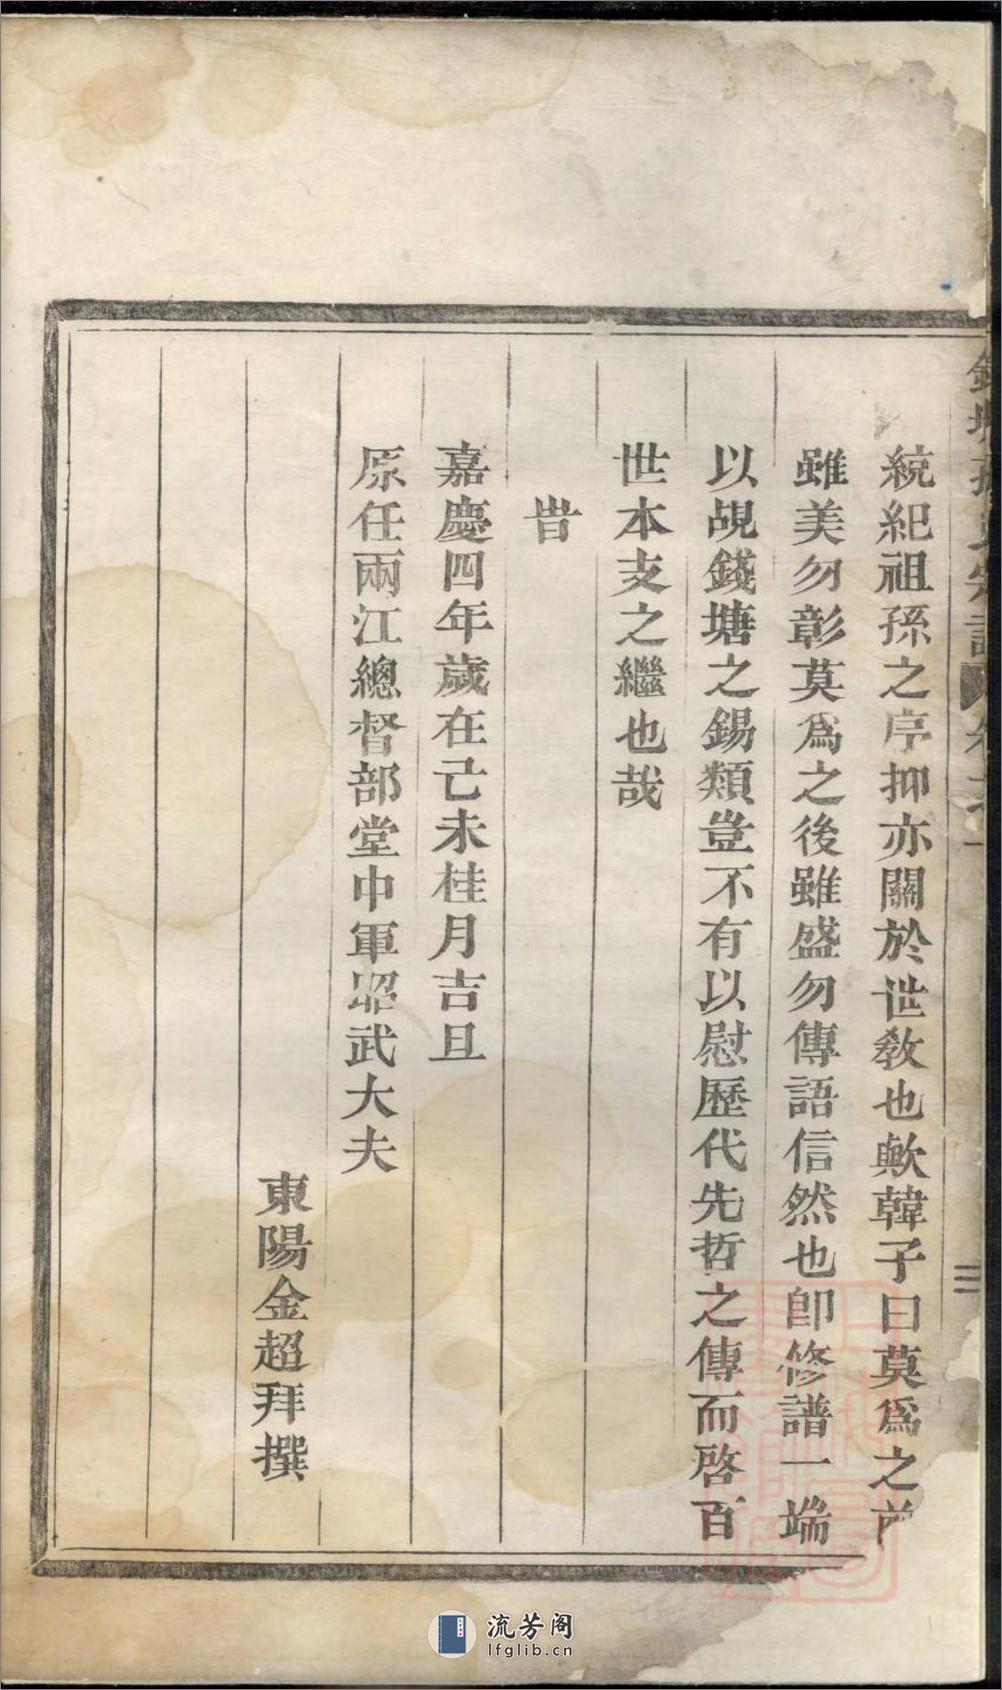 統紀祖孫之序抑亦關於世敎也歟韓子曰莫爲之前
雖美勿彰莫爲之後雖盛勿傳語信然也卽修譜一端
以覘錢塘之錫類豈不有以慰歷代先哲之傳而啓百
世本支之繼也哉
旹
嘉慶四年歲在己未桂月吉旦
原任兩江總督部堂中軍昭武大夫
東陽金超拜撰
流芳阁
lfglib.cn